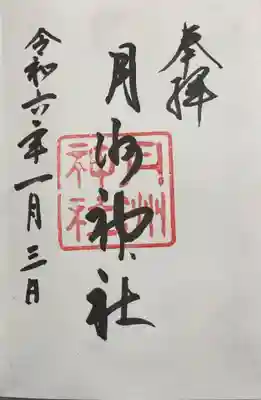 奉拝
月洲神社
月州神社
令和六年一月三日